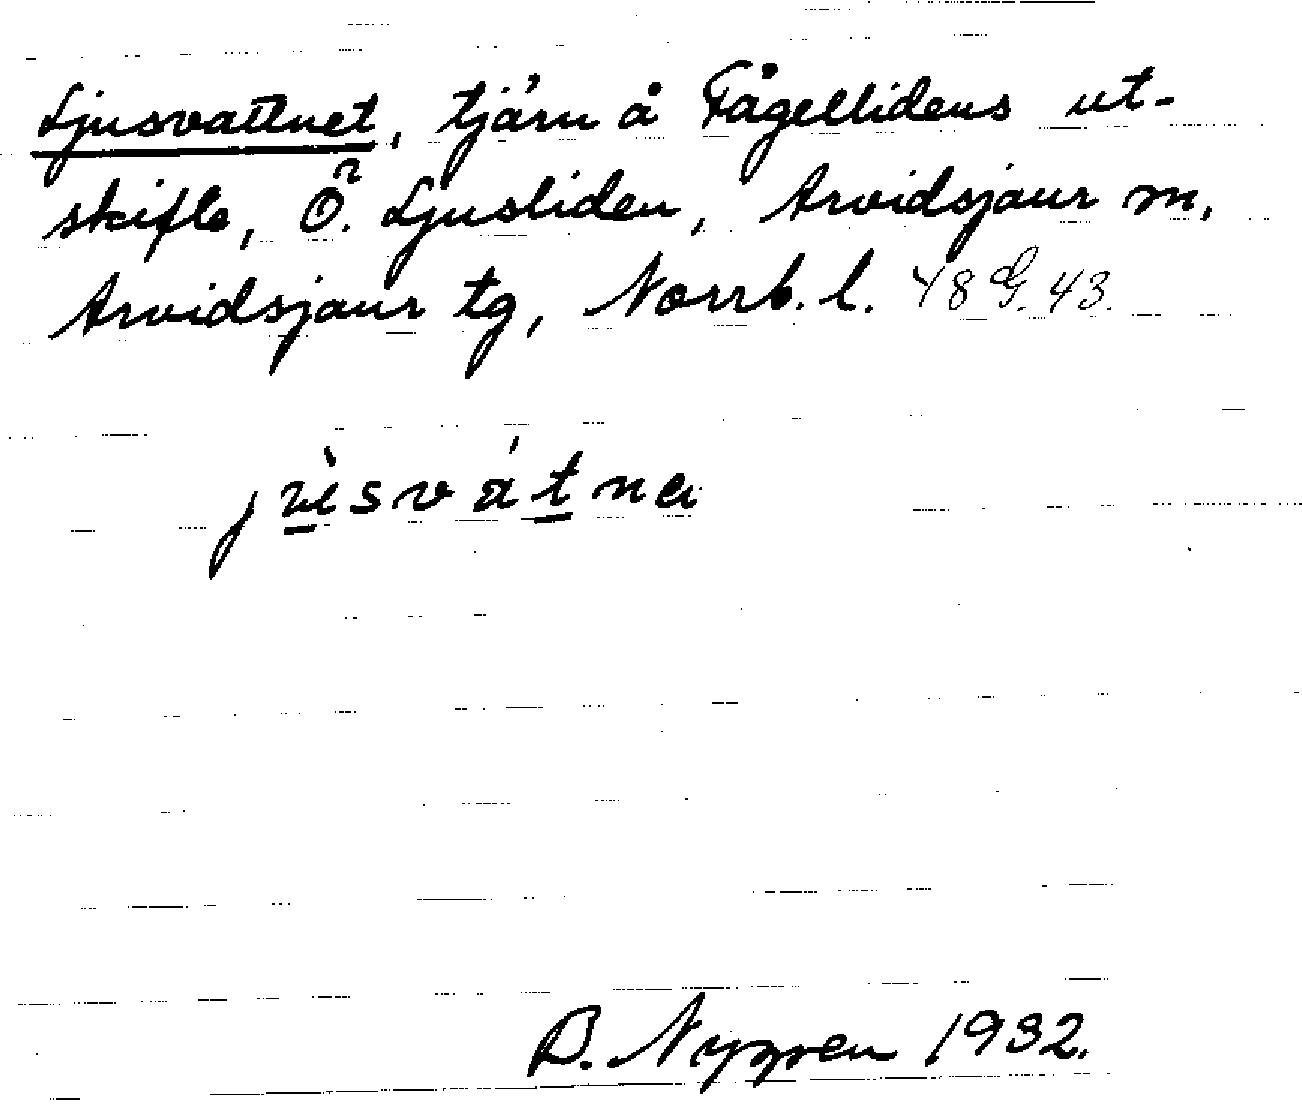 Ljusvattnet, tjärn å Fågellidens ut-
skifte, Ö. Ljusliden, Arvidsjaur sn,
Arvidsjaur tg, Norrb. l. 48 G. 43.
jùsvátna
1932.